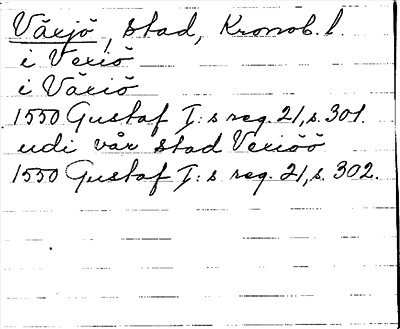 Växjö, stad, Kronob. l.
i Vexiö
i Växiö
1550 Gustaf I:s reg. 21, s. 301.
udi vår stad Vexiöö
1550 Gustaf I:s reg. 21, s. 302.